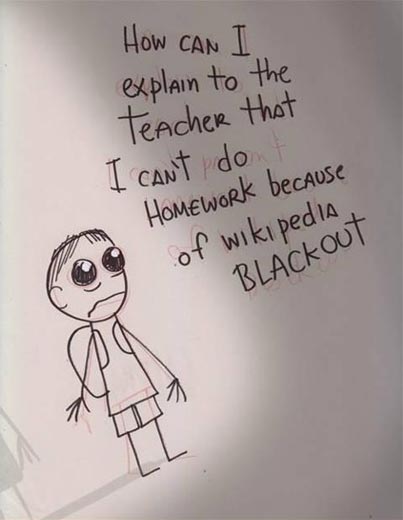 HOW CAN I
explain to the
TEACHER that
I CAN'T do
HOMEWORK because
of wikipedia
BLACKOUT